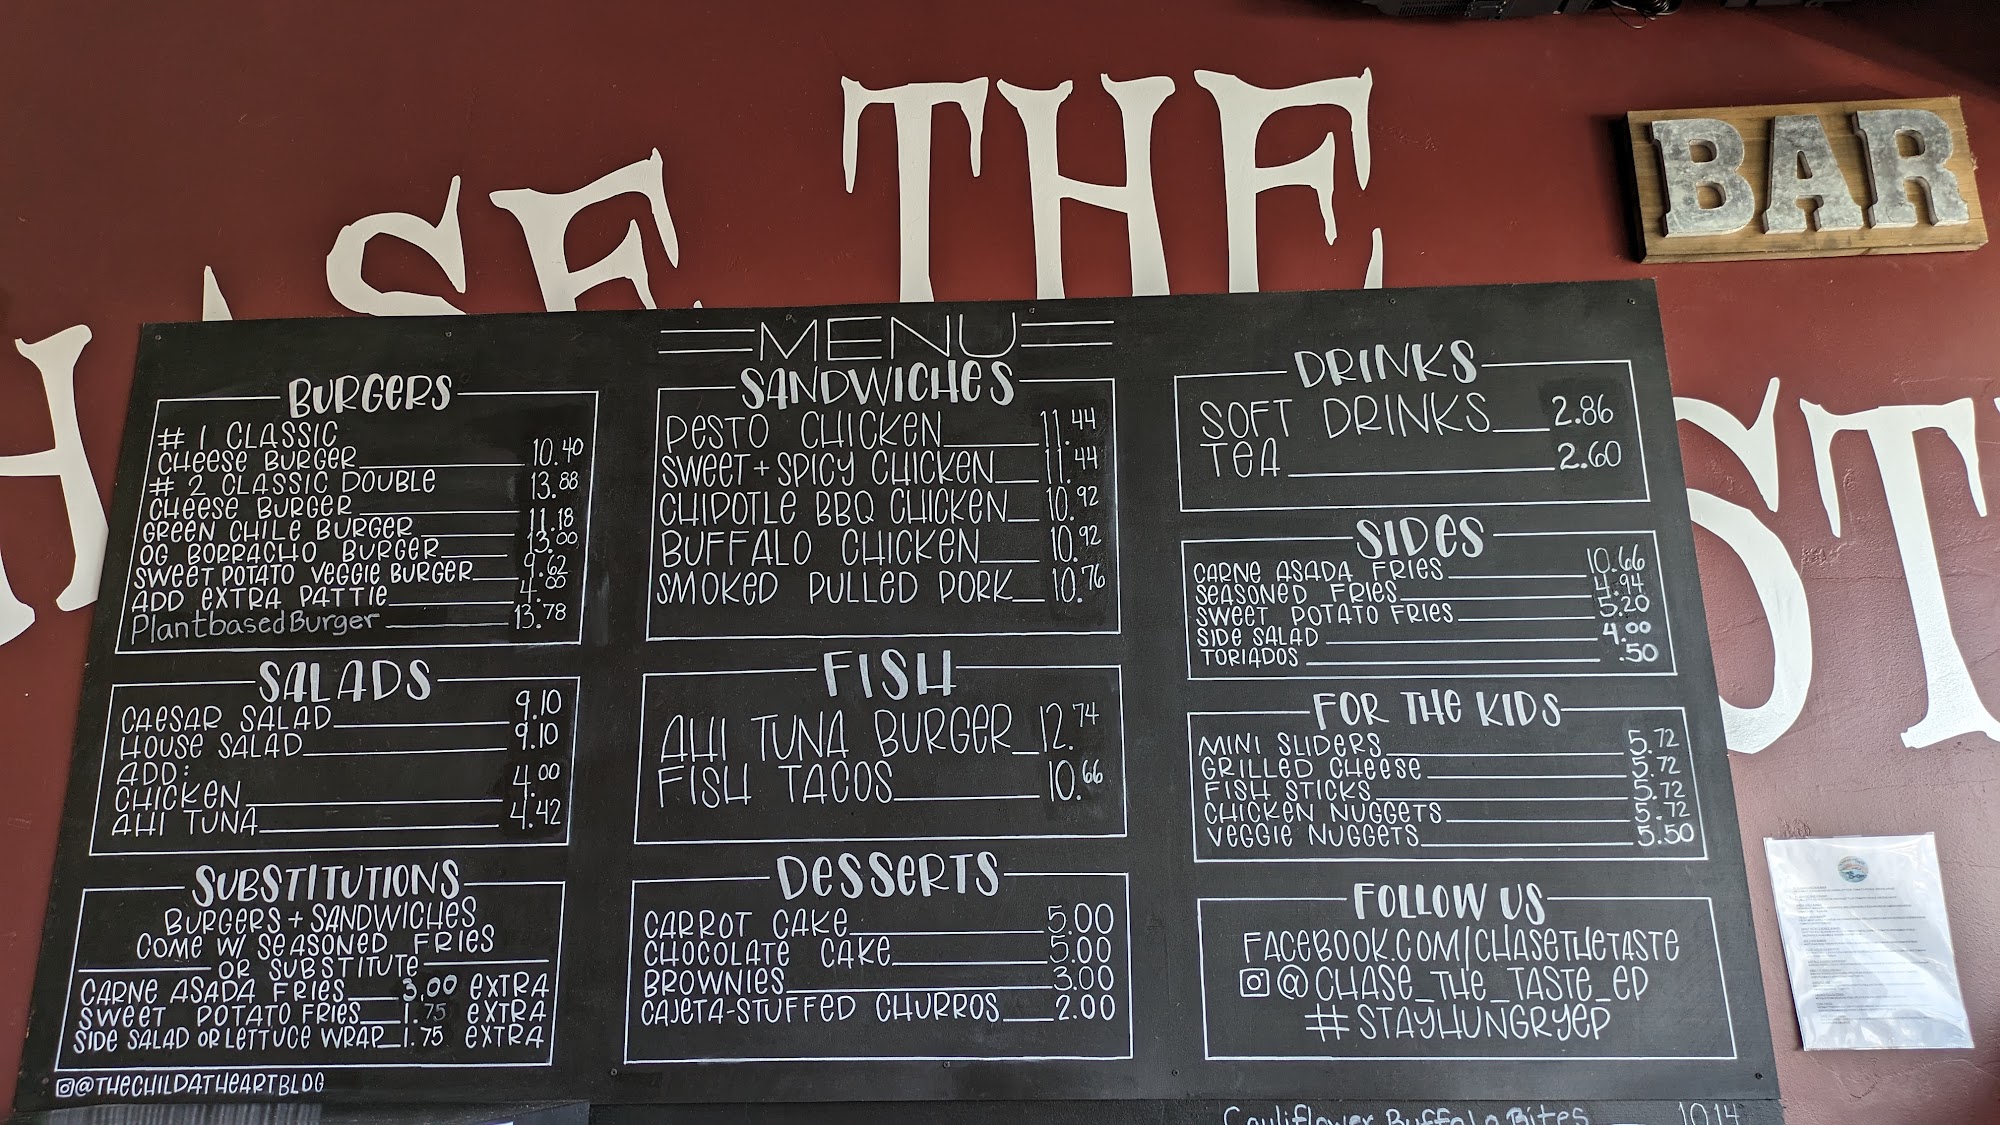 HASE THE
BAR
ST
MENU
BURGERS
# 1 CLASSIC
CHEESE BURGER 10.40
# 2 CLASSIC DOUBLE
CHEESE BURGER 13.88
GREEN CHILE BURGER 11.18
OG BORRACHO BURGER 13.00
SWEET POTATO VEGGIE BURGER 9.62
ADD EXTRA PATTIE 4.00
Plantbased Burger 13.78
SALADS
CAESAR SALAD 9.10
HOUSE SALAD 9.10
ADD:
CHICKEN 4.00
AHI TUNA 4.42
SUBSTITUTIONS
BURGERS + SANDWICHES
COME W/ SEASONED FRIES
OR SUBSTITUTE
CARNE ASADA FRIES 3.00 EXTRA
SWEET POTATO FRIES 1.75 EXTRA
SIDE SALAD OR LETTUCE WRAP 1.75 EXTRA
@THECHILDATHEARTBLOG
SANDWICHES
PESTO CHICKEN 11.44
SWEET + SPICY CHICKEN 11.44
CHIPOTLE BBQ CHICKEN 10.92
BUFFALO CHICKEN 10.92
SMOKED PULLED PORK 10.76
FISH
AHI TUNA BURGER 12.74
FISH TACOS 10.66
DESSERTS
CARROT CAKE 5.00
CHOCOLATE CAKE 5.00
BROWNIES 3.00
CAJETA-STUFFED CHURROS 2.00
DRINKS
SOFT DRINKS 2.86
TEA 2.60
SIDES
CARNE ASADA FRIES 10.66
SEASONED FRIES 4.94
SWEET POTATO FRIES 5.20
SIDE SALAD 4.00
TORIADOS .50
FOR THE KIDS
MINI SLIDERS 5.72
GRILLED CHEESE 5.72
FISH STICKS 5.72
CHICKEN NUGGETS 5.72
VEGGIE NUGGETS 5.50
FOLLOW US
FACEBOOK.COM/CHASETHETASTE
@CHASE_THE_TASTE_EP
#STAYHUNGRYEP
Cauliflower Buffalo Bites 10.14